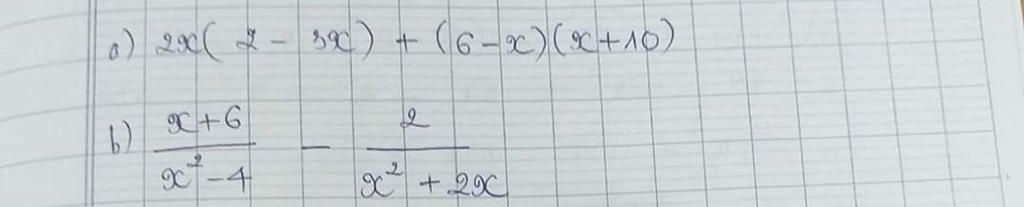 a) 2x( 2 - 3x) + (6-x)(x+10)
b) \frac{x+6}{x^2-4} - \frac{2}{x^2+2x}